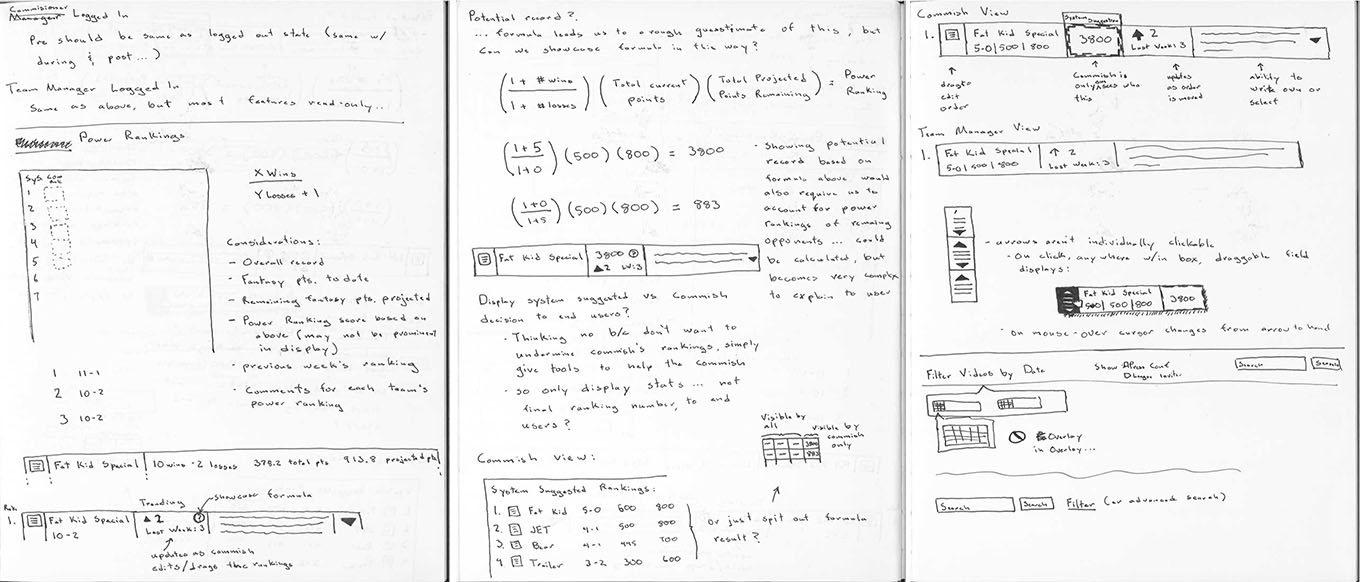 Commissioner
Manager Logged In
Pre should be same as logged out state (same w/
during & post...)
Team Manager Logged In
Same as above, but most features read-only...
Power Rankings
Sys. Com
1
2
3
4
5
6
7
X Wins
Y Losses + 1
Considerations:
- Overall record
- Fantasy pts. to date
- Remaining fantasy pts. projected
- Power Ranking score based on
above (may not be prominent
in display)
· previous week's ranking
· Comments for each team's
power ranking
1 11-1
2 10-2
3 10-2
Fat Kid Special 10 wins - 2 losses 378.2 total pts 913.8 projected pts
Rnk Trending showcase formula
1. Fat Kid Special ▲2 ?
10-2 Last Week: 3
updated as commish
edits/drags the rankings
Potential record?
... formula leads us to a rough guestimate of this, but
can we showcase formula in this way?
(1 + # wins / 1 + # losses) (Total current points) (Total Projected Points Remaining) = Power Ranking
(1+5 / 1+0) (500) (800) = 3800
(1+0 / 1+5) (500) (800) = 883
· Showing potential
record based on
formula above would
also require us to
account for power
rankings of remaing
opponents ... could
be calculated, but
becomes very complex
to explain to user
Fat Kid Special 3800 ?
▲2 LW:3
Display system suggested vs commish
decision to end users?
· Thinking no b/c don't want to
undermine commish's rankings, simply
give tools to help the commish
· so only display stats ... not
final ranking number, to end
users?
Visible by
all
visible by
commish
only
3800
883
Commish view:
System Suggested Rankings:
1. Fat Kid 5-0 500 800
2. JET 4-1 500 800
3. Bear 4-1 445 700
4. Trailer 3-2 300 600
or just spit out formula
result?
Commish View
System Suggestion
1. Fat Kid Special 3800 ▲ 2
5-0 | 500 | 800 Last Week: 3
drag to
edit
order
Commish is
only one who
sees
this
updates
as order
is moved
ability to
write own or
select
Team Manager View
1. Fat Kid Special ↑ 2
5-0 | 500 | 800 Last Week: 3
- arrows aren't individually clickable
- On click, anywhere w/in box, draggable field
displays:
Fat Kid Special 3800
5-0 | 500 | 800
· on mouse-over cursor changes from arrow to hand
Filter Videos by Date
Show Press Conf
Search Search
Overlay
in Overlay...
Search Search Filter (or advanced search)